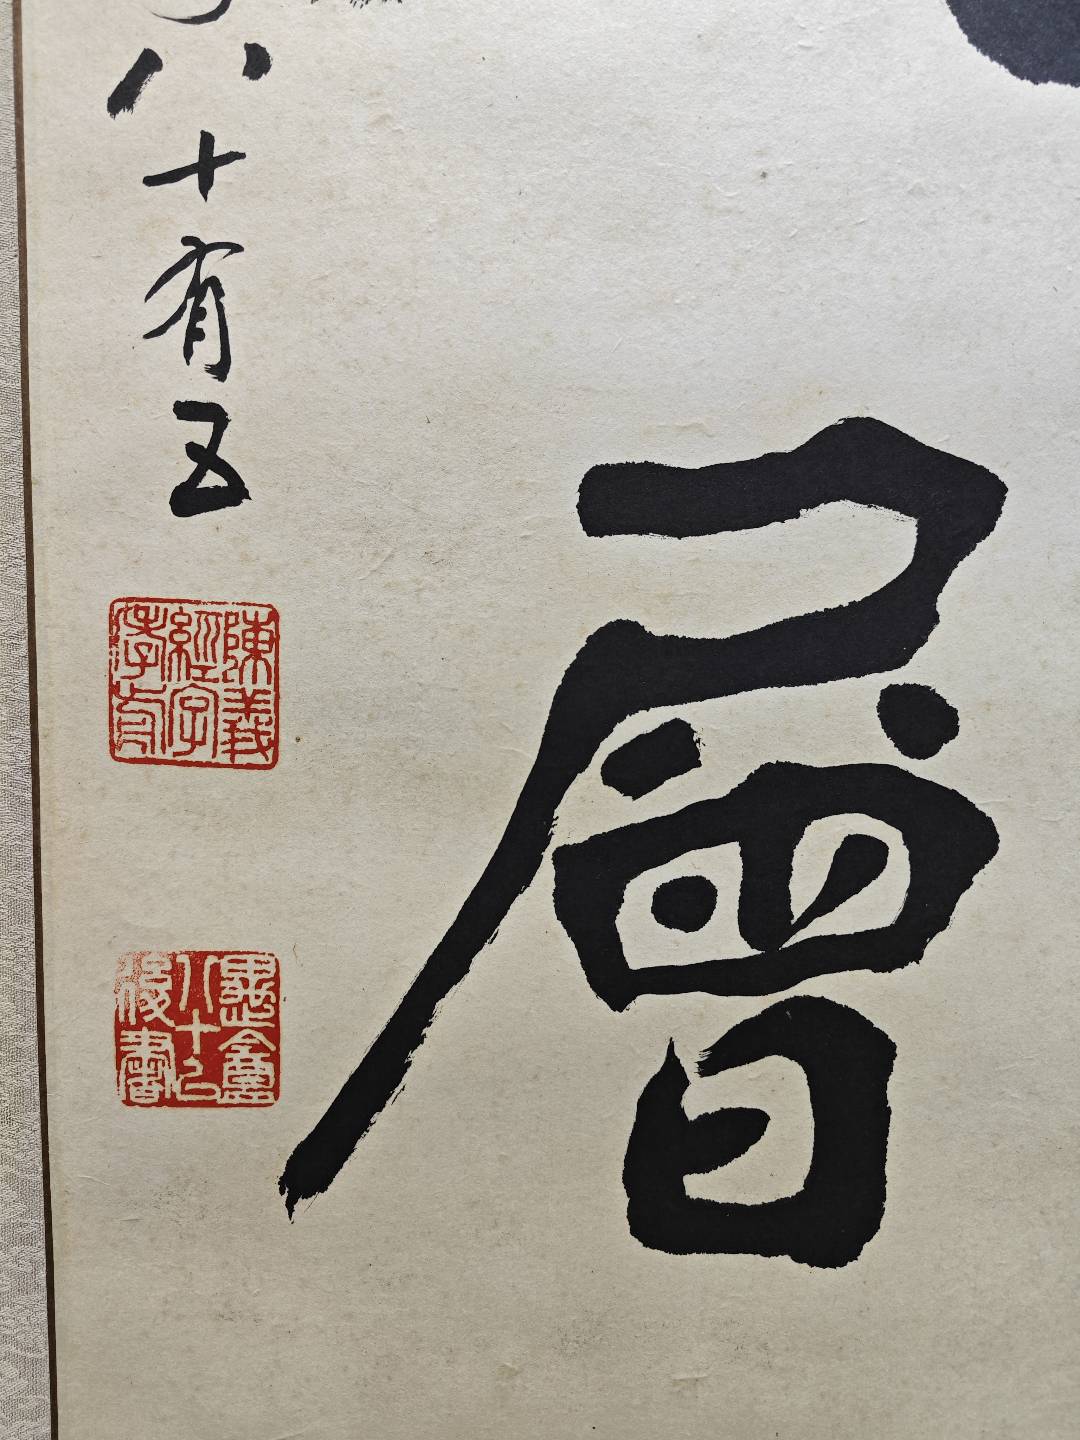 層
八十有五
陳義
經字
孝友
八十以
後書